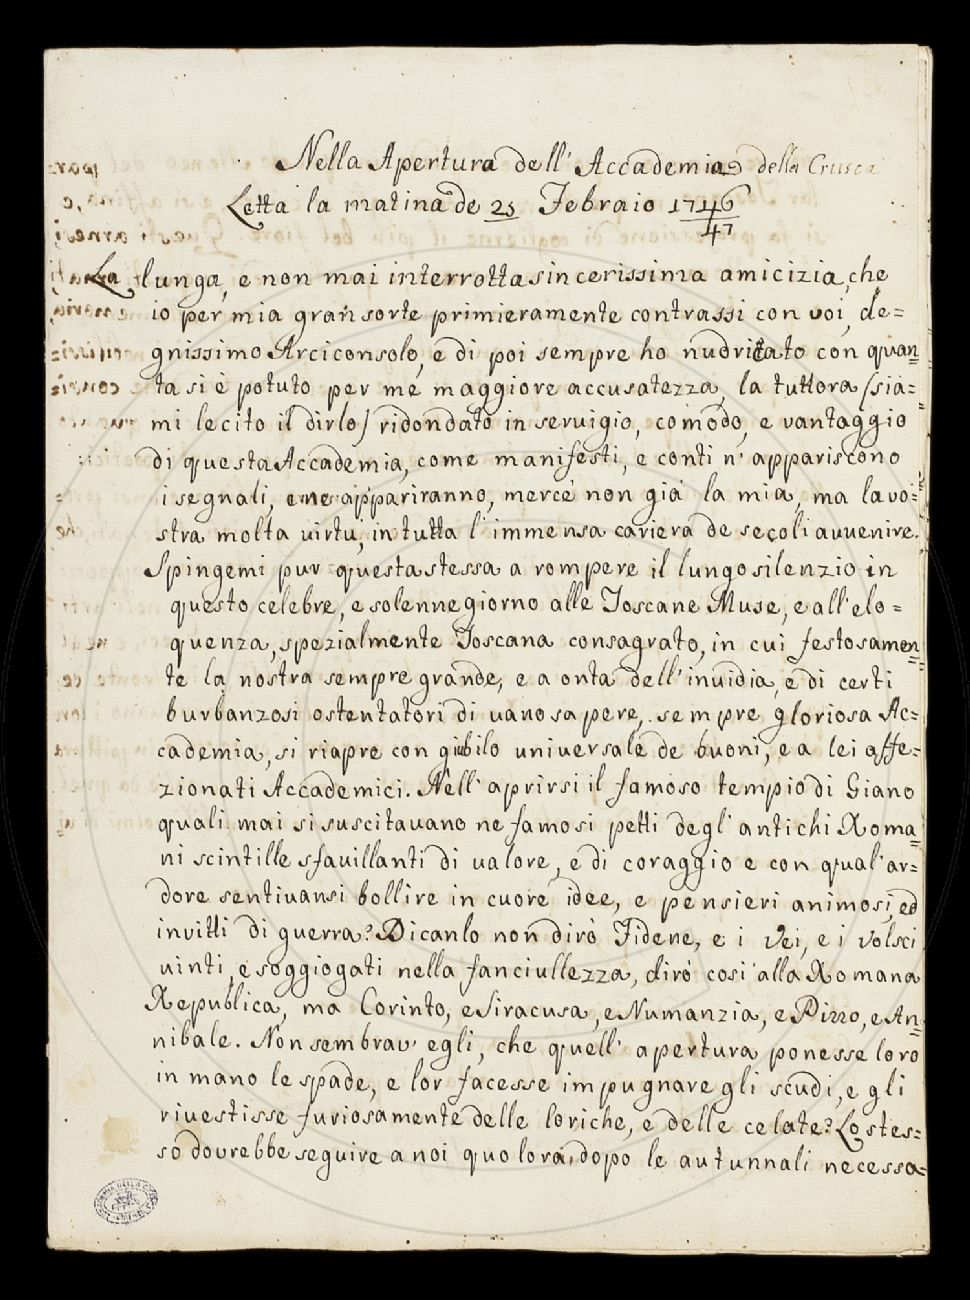 Nella Apertura dell' Accademia della Crusca
Letta la matina de 25 Febraio 1746
47
La lunga, e non mai interrotta sincerissima amicizia, che
io per mia gran sorte primieramente contrassi con voi, de=
gnissimo Arciconsolo, e di poi sempre ho nudritato con quan=
ta si è potuto per me maggiore accusatezza, la tuttora (sia=
mi lecito il dirlo) ridondato in seruigio, comodo, e vantaggio
di questa Accademia, come manifesti, e conti n' appariscono
i segnali, e ne appariranno, mercè non già la mia, ma la vo=
stra molta uirtù, in tutta l' immensa cariera de secoli auuenire.
Spingemi pur questa stessa a rompere il lungo silenzio in
questo celebre, e solenne giorno alle Toscane Muse, e all' elo=
quenza, spezialmente Toscana consagrato, in cui festosamen=
te la nostra sempre grande, e a onta dell' inuidia, e di certi
burbanzosi ostentatori di uano sapere, sempre gloriosa Ac=
cademia, si riapre con giubilo uniuersale de buoni, e a lei affe=
zionati Accademici. Nell' aprirsi il famoso tempio di Giano
quali mai si suscitauano ne famosi petti degl' antichi Roma=
ni scintille sfauillanti di ualore, e di coraggio e con qual' ar=
dore sentiuansi bollire in cuore idee, e pensieri animosi, ed
inuitti di guerra? Dicanlo non dirò Fidene, e i Vei, e i Volsci
uinti, e soggiogati nella fanciullezza, dirò così alla Romana
Republica, ma Corinto, e Siracusa, e Numanzia, e Pirro, e An=
nibale. Non sembrau' egli, che quell' apertura ponesse loro
in mano le spade, e lor facesse impugnare gli scudi, e gli
riuestisse furiosamente delle loriche, e delle celate? Lo stes=
so dourebbe seguire a noi quo lora, dopo le autunnali necessa=